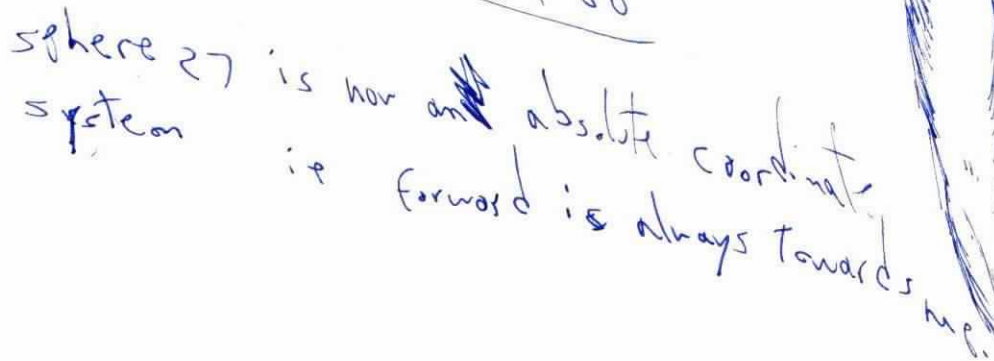 sphere 27 is now an absolute coordinate
system
ie forward is always towards me.